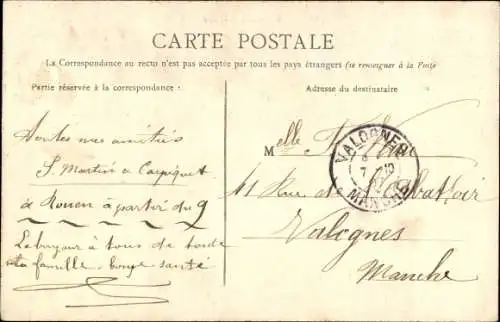 CARTE POSTALE
La Correspondance au recto n'est pas acceptée par tous les pays étrangers (se renseigner à la Poste
Partie réservée à la correspondance :
Toutes mes amitiés
S. Martin à Carpiquet
à Rouen à partir du 9
Le bonjour à tous de toute
la famille bonne santé
Adresse du destinataire
Melle
41 Rue de l'Abattoir
Valognes
Manche
VALOGNES
MANCHE